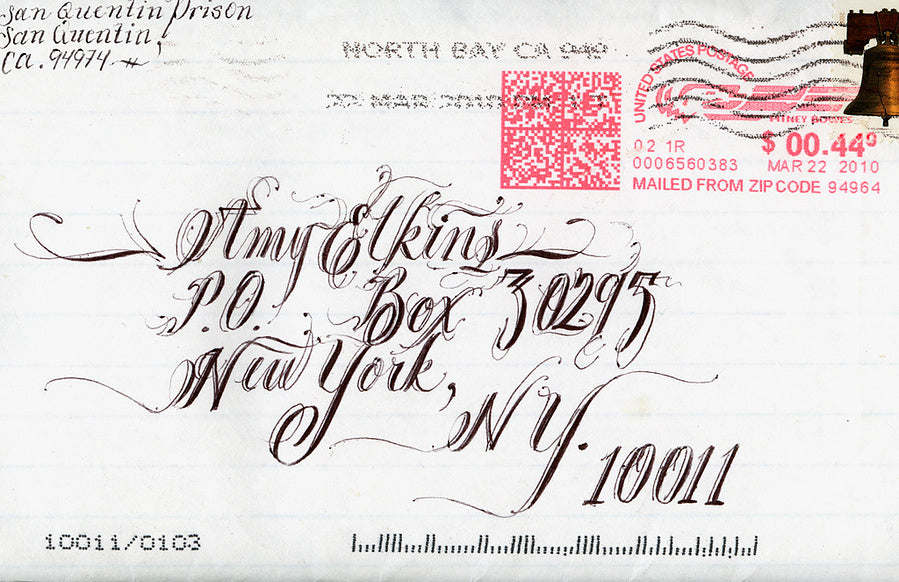 San Quentin Prison
San Quentin,
CA. 94974
NORTH BAY CA 949
22 MAR 2010 PM
UNITED STATES POSTAGE
PITNEY BOWES
$ 00.44⁰
02 1R
0006560383 MAR 22 2010
MAILED FROM ZIP CODE 94964
Amy Elkins
P.O. Box 30295
New York,
NY.
10011
10011/0103